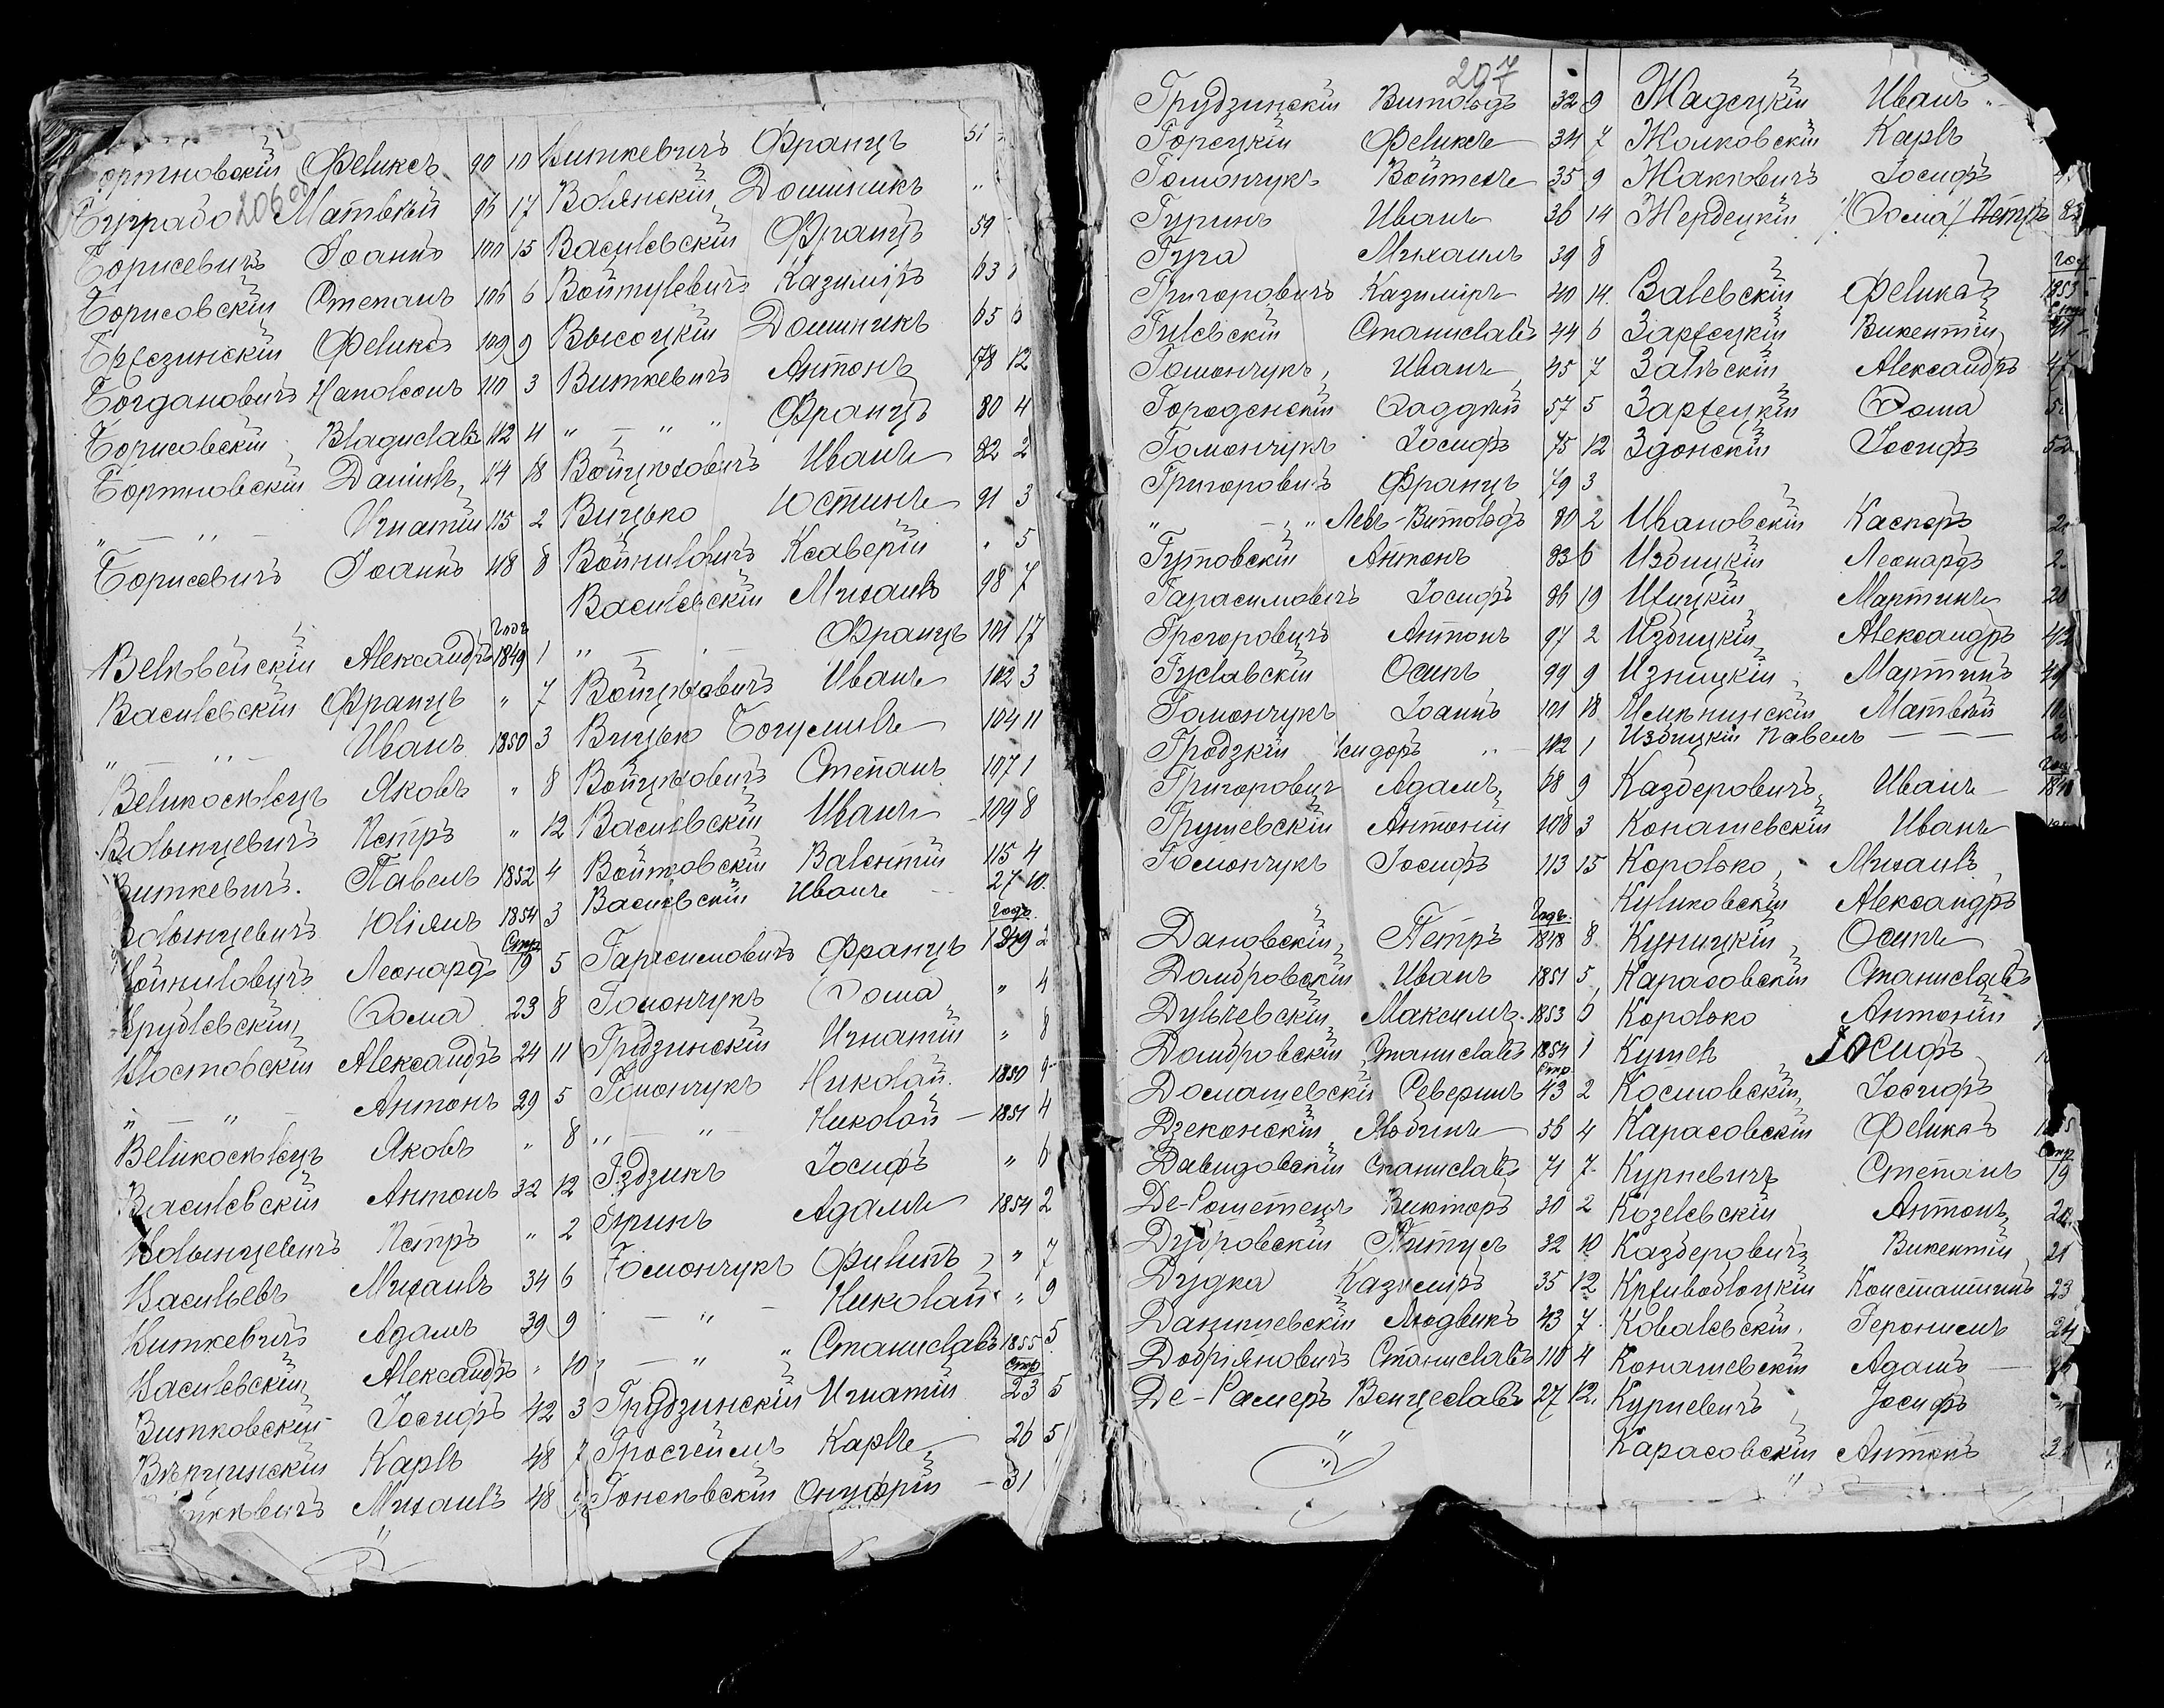 206 об
Бортновскій Феликсъ 90 10
Буградо Матвѣй 96 17
Борисевичъ Іоаннъ 100 15
Борисовскій Степанъ 106 6
Брезинскій Феликсъ 109 9
Богдановичъ Наполеонъ 110 3
Борисовскій Владиславъ 112 4
Бортновскій Даніилъ 114 18
" — " — Игнатій 115 2
Борисевичъ Іоаннъ 118 8
Годъ
Александръ 1849 1
Василевскій Францъ " 7
" — " — Иванъ 1850 3
Великоселецъ Яковъ " 8
Волынцевичъ Петръ " 12
Виткевичъ Павелъ 1852 4
Волынцевичъ Юліянъ 1854 3
Стр
Войниловичъ Леонардъ 19 5
Врублевскій Ѳома 23 8
Александръ 24 11
" — " — Антонъ 29 5
Великоселецъ Яковъ " 8
Василевскій Антонъ 32 12
Волынцевичъ Петръ " 2
Васильевъ Михаилъ 34 6
Виткевичъ Адамъ 39 9
Василевскій Александръ " 10
Витковскій Іосифъ 42 3
Карлъ 48 7
Михаилъ 48
Виткевичъ Францъ 51
Волянскій Доминикъ "
Василевскій Францъ 59
Войтулевичъ Казиміръ 63
Высоцкій Доминикъ 65 6
Виткевичъ Антонъ 78 12
" — " " Францъ 80 4
Войцѣховичъ Иванъ 82 2
Вицько Юстинъ 91 3
Войниловичъ Ксаверій " 5
Василевскій Михаилъ 98 7
" — " — Францъ 101 17
Войцѣховичъ Иванъ 102 3
Вицько Богумилъ 104 11
Войцѣховичъ Степанъ 107 1
Василевскій Иванъ 109 8
Войтовскій Валентій 115 4
Василевскій Иванъ — 27 10
Годъ
Гарасимовичъ Францъ 1849 2
Гомончукъ Ѳома " 4
Грудзинскій Игнатій " 8
Гомончукъ Николай 1850 9
" — " — Николай — 1851 4
Іосифъ " 6
Гуринъ Адамъ 1854 2
Гомончукъ Филипъ " 7
— " — Николай " 9
" — " " Станиславъ 1855 5
Стр
Грудзинскій Игнатій 23 5
Карлъ 26 5
Онуфрій — 31
207
Грудзинскій Витольдъ 32 9
Горецкій Феликсъ 34 7
Гомончукъ Войтехъ 35 9
Гуринъ Иванъ 36 14
Гура Михаилъ 39 8
Григоровичъ Казиміръ 40 14
Гилевскій Станиславъ 44 6
Гомончукъ Иванъ 45 7
Городенскій Ѳаддей 57 5
Гомончукъ Іосифъ 75 12
Григоровичъ Францъ 79 3
" — " Левъ-Витольдъ 80 2
Гутовскій Антонъ 83 6
Гарасимовичъ Іосифъ 86 19
Грегоровичъ Антонъ 97 2
Гуславскій Осипъ 99 9
Гомончукъ Іоаннъ 101 18
Гродзкій Исидоръ " — 102 1
Григорович Адамъ 68 9
Грушевскій Антоній 108 3
Гомончукъ Іосифъ 113 15
Годъ
Дановскій Петръ 1848 8
Домбровскій Иванъ 1851 5
Дульчевскій Максимъ 1853 6
Домбровскій Станиславъ 1854 1
Стр
Домашевскій Северинъ 43 2
Дзеконскій 56 4
Давидовскій Станиславъ 71 7
Викторъ 30 2
Дубровскій Титусъ 32 10
Дудка Казиміръ 35 12
Данишевскій Людвикъ 43 7
Добріяновичъ Станиславъ 116 4
Де-Рамеръ Венцеславъ 27 12
Жадецкій Иванъ
Жолковскій Карлъ
Жаковичъ Іосифъ
Жердецкій (Ѳома) Петръ
Год
Залевскій Феликсъ 1853
Зарѣцкій Викентій
Залѣскій Александръ 47
Зарѣцкій Ѳома
Здонскій Іосифъ 52
Ивановскій Касперъ
Избицкій Леонардъ
Мартинъ 20
Избицкій Александръ 42
Мартинъ
Матвѣй
Избицкій Павелъ — — —
Казберовичъ Иванъ
Конашевскій Иванъ
Королько Михаилъ
Куликовскій Александръ
Куницкій Осипъ
Карасовскій Станиславъ
Королько Антоній
Кушель Іосифъ
Косновскій Іосифъ
Карасовскій Феликсъ 1855
Стр
Курневичъ Степанъ 19
Козелевскій Антонъ
Казберовичъ Викентій 21
Кривоблоцкій Константинъ 23
Ковалевскій Геронимъ 24
Конашевскій Адамъ —
Курневичъ Іосифъ
Карасовскій Антонъ